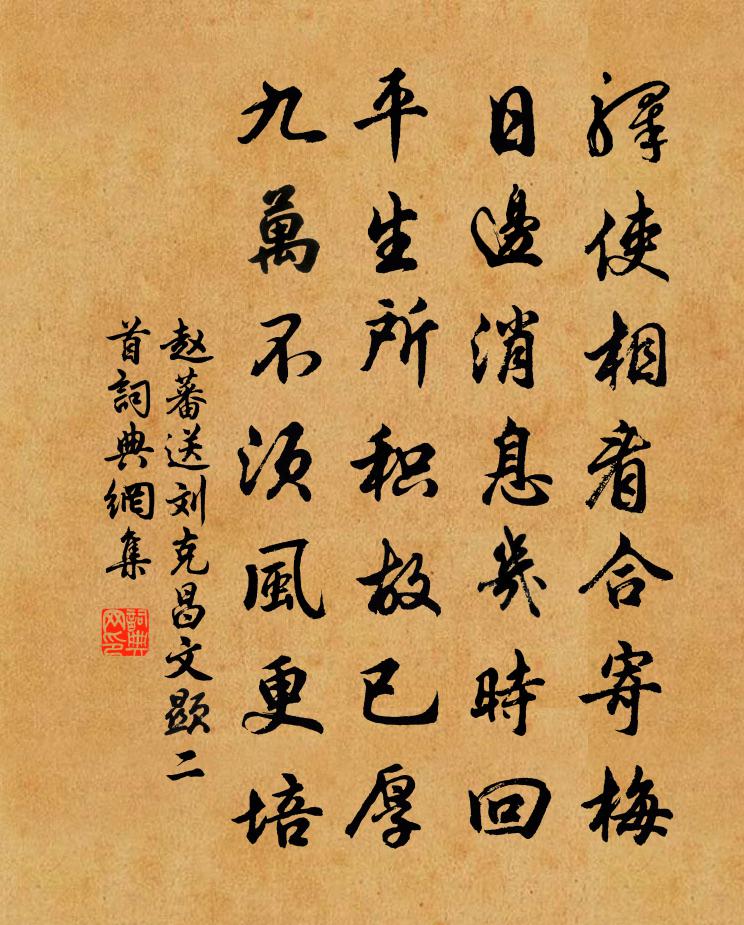 驛使相看合寄梅
日邊消息幾時回
平生所积故已厚
九萬不须風更培
赵蕃送刘克昌文顯二
首詞典網集
詞典网印